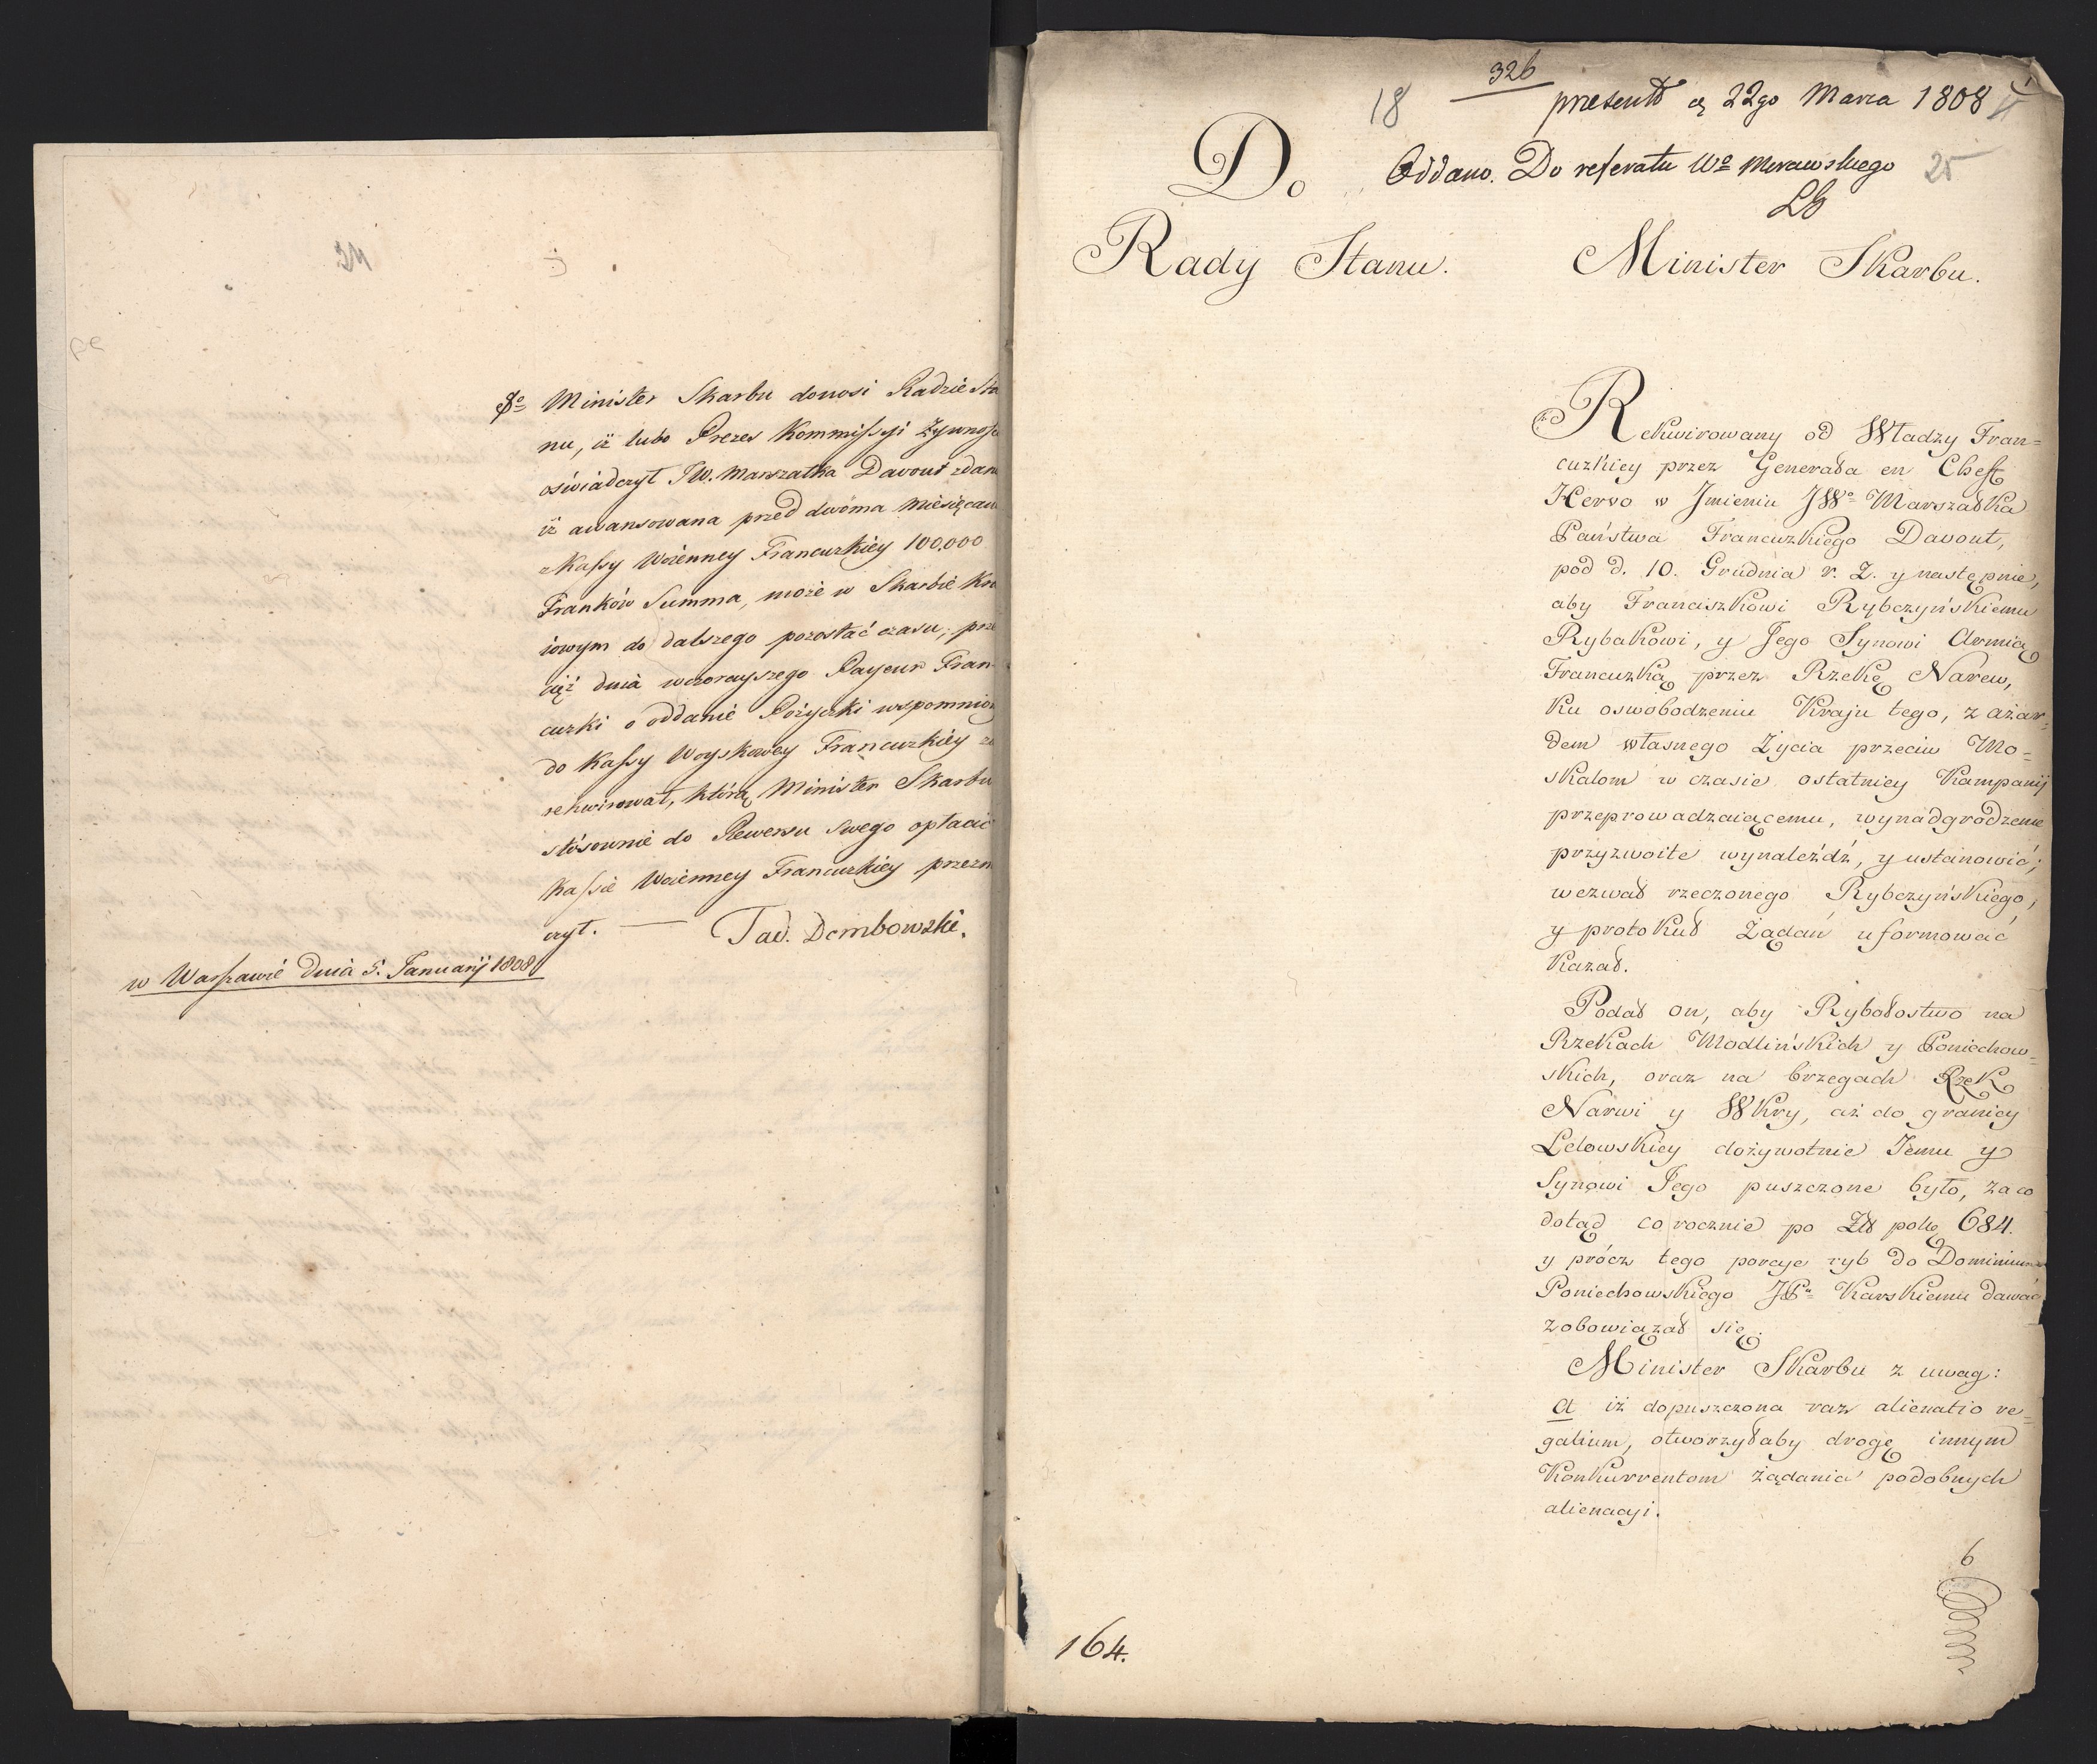 24
Minister Skarbu donosi Radzie Sta
nu, iż lubo Prezes Kommissyi Żywnośc
oświadczył JW. Marszałka Davout zdan
iż awansowana przed dwóma miesięcam
z Kassy Woienney Francuzkiey 100,000
Franków Summa, może w Skarbie Kra
iowym do dalszego pozostać czasu; prze
cięż dnia wczorayszego Payeur Fran
cuzki o oddanie Pożyczki wspomnion
do Kassy Woyskowey Francuzkiey za
rekwirował, którą Minister Skarbu
stósownie do Rewersu swego opłacić
Kassie Woienney Francuzkiey przezn
czył. — Tad. Dembowski.
w Warszawie Dnia 5. Januarij 1808
326
18
present 22go Marca 1808
Oddano. Do referatu Wo Morawskiego
25
Do
Rady Stanu.
Minister Skarbu.
Rekwirowany od Władzy Fran=
cuzkiey przez Generała en Cheff
Hervo w Jmieniu JWo Marszałka
Państwa Francuzkiego Davout,
pod d. 10. Grudnia r. z. y następnie,
aby Franciszkowi Rybczyńskiemu
Rybakowi, y Jego Synowi Armią
Francuzką przez Rzekę Narew,
ku oswobodzeniu Kraju tego, z ażar=
dem własnego Życia przeciw Mo=
skalom w czasie ostatniey Kampanij
przeprowadzaiącemu, wynadgrodzenie
przyzwoite wynaleźdź, y ustanowić;
wezwał rzeczonego Rybczyńskiego,
y protokuł Żądań uformować
kazał.
Podał on, aby Rybołostwo na
Rzekach Modlińskich y Poniechow=
skich, oraz na brzegach Rzek
Narwi y Wkry, aż do granicy
Ledowskiey dożywotnie Jemu y
Synowi Jego puszczone było, za co
dotąd corocznie po Zł pol. 684.
y prócz tego porcye ryb do Dominium
Poniechowskiego JPu Karskiemu dawać
zobowiązał się.
Minister Skarbu z uwag:
a iż dopuszczona raz alienatio re=
galium, otworzyłaby drogę innym
Konkurrentom żądania podobnych
alienacyi.
6
164.